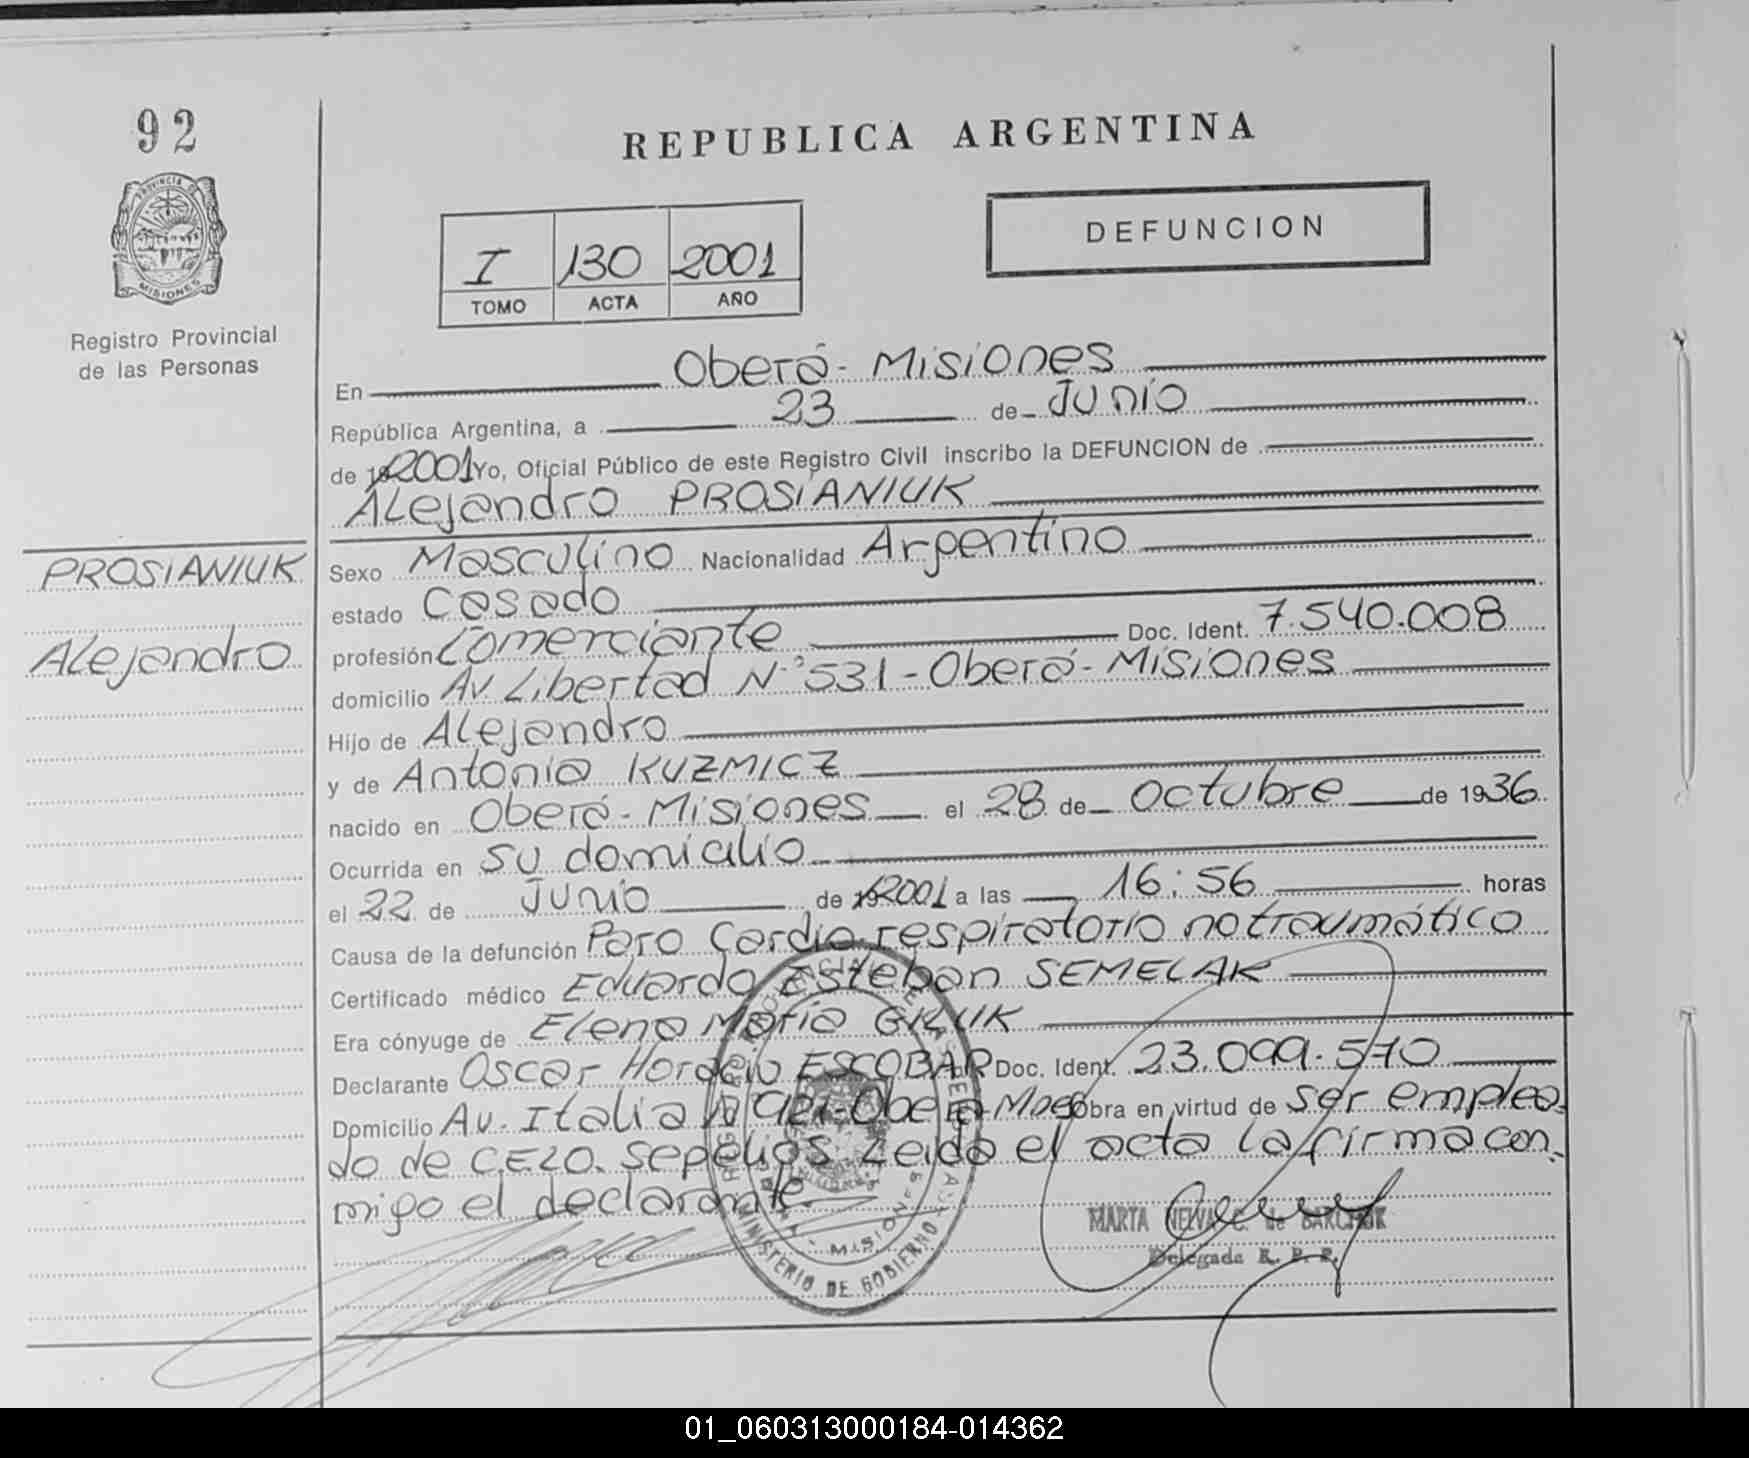 92
REPUBLICA ARGENTINA
DEFUNCION
I 130 2001
TOMO ACTA AÑO
PROVINCIA DE
MISIONES
Registro Provincial
de las Personas
En Oberá - Misiones
República Argentina, a 23 de Junio
de 2001 Yo, Oficial Público de este Registro Civil inscribo la DEFUNCION de
Alejandro PROSIANIUK
PROSIANIUK
Alejandro
Sexo Masculino Nacionalidad Argentino
estado Casado
profesión Comerciante Doc. Ident. 7.540.008
domicilio Av. Libertad N° 531 - Oberá - Misiones
Hijo de Alejandro
y de Antonia KUZMICZ
nacido en Oberá - Misiones el 28 de Octubre de 1936
Ocurrida en su domicilio
el 22 de Junio de 2001 a las 16:56 horas
Causa de la defunción Paro Cardio respiratorio no traumático
Certificado médico Eduardo Esteban SEMELAK
Era cónyuge de Elena María
Declarante Oscar Horacio ESCOBAR Doc. Ident. 23.099.570
Domicilio Av. Italia N° Oberá - Mnes Obra en virtud de ser emplea
do de C.E.L.O. Sepelios. Leida el acta la firma con
migo el declarante.
MARTA NELVA C. de
Delegada R. P. P.
MINISTERIO DE GOBIERNO
MISIONES
01_060313000184-014362